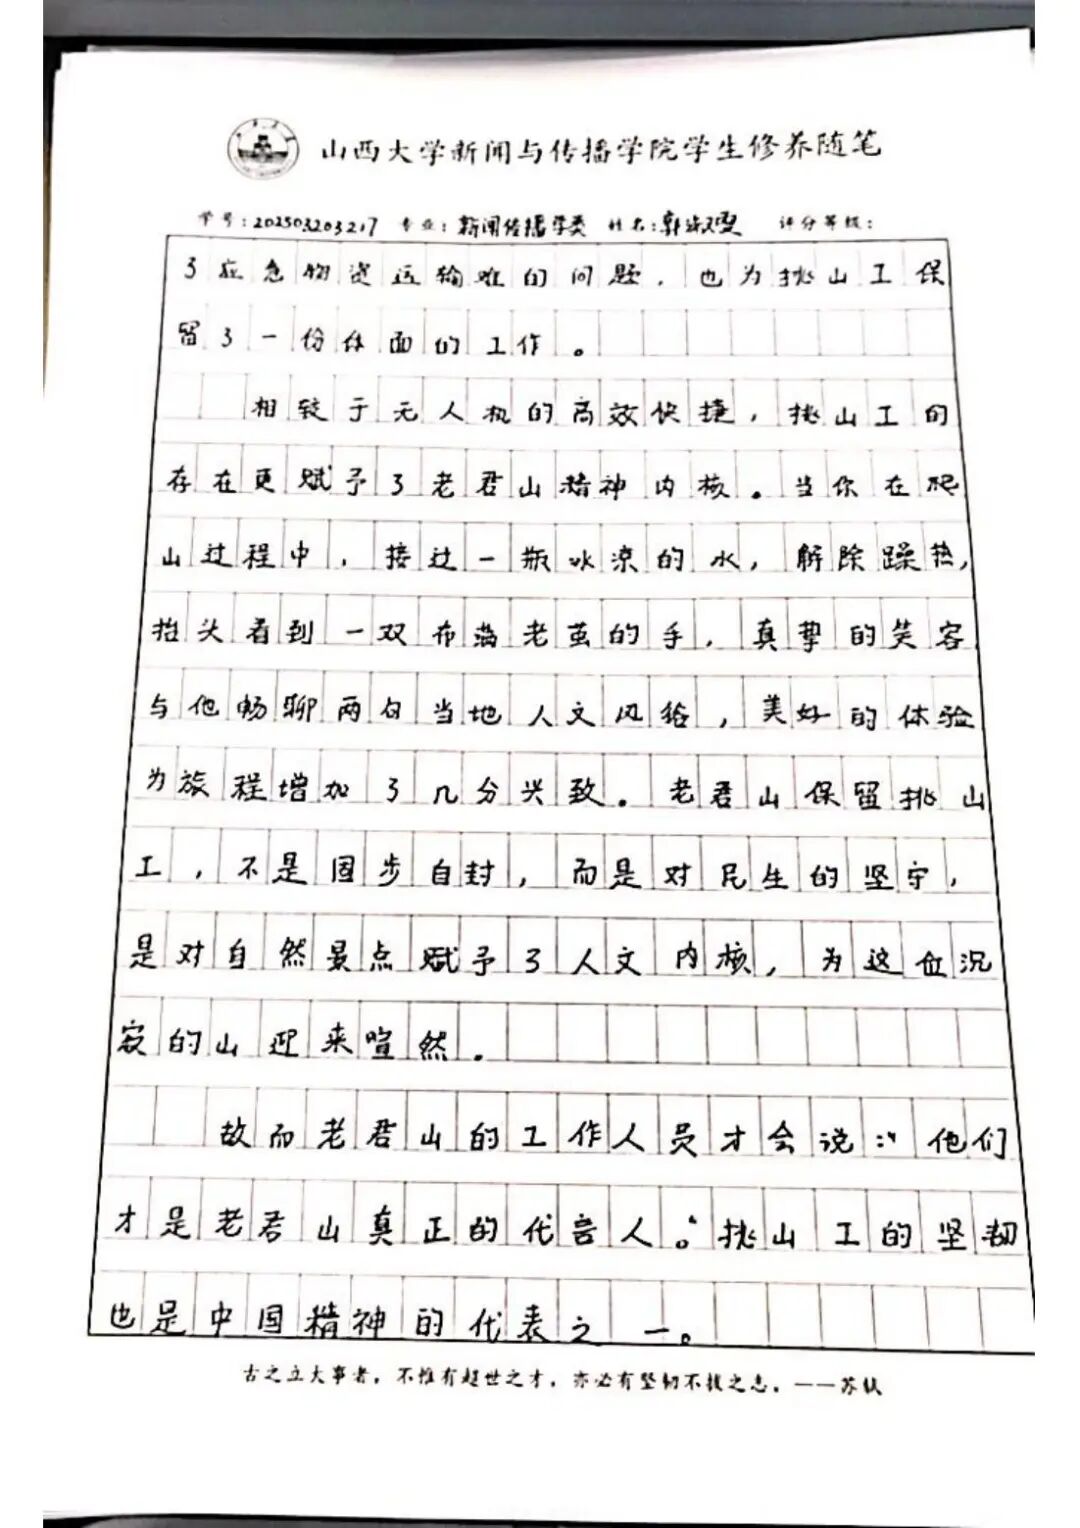 山西大学新闻与传播学院学生修养随笔
学号:202503203217 专业:新闻传播学类 姓名:郭淑雯 评分等级:
了应急物资运输难的问题，也为挑山工保
留了一份体面的工作。
相较于无人机的高效快捷，挑山工的
存在更赋予了老君山精神内核。当你在爬
山过程中，接过一瓶冰凉的水，解除躁热，
抬头看到一双布满老茧的手，真挚的笑容
与他畅聊两句当地人文风俗，美好的体验
为旅程增加了几分兴致。老君山保留挑山
工，不是固步自封，而是对民生的坚守，
是对自然景点赋予了人文内核，为这位沉
寂的山迎来喧然。
故而老君山的工作人员才会说：“他们
才是老君山真正的代言人。”挑山工的坚韧
也是中国精神的代表之一。
古之立大事者，不惟有超世之才，亦必有坚韧不拔之志。——苏轼